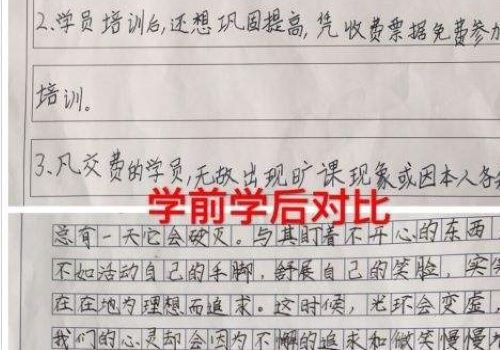 2.学员培训后,还想巩固提高,凭收费票据免费参加
培训。
3.凡交费的学员,无故出现旷课现象或因本人各
学前学后对比
总有一天它会破灭。与其盯着不开心的东西
不如活动自己的手脚,舒展自己的笑脸,实实
在在地为理想而追求。这时候,光环会变虚
我们的心灵却会因为不懈的追求和微笑慢慢